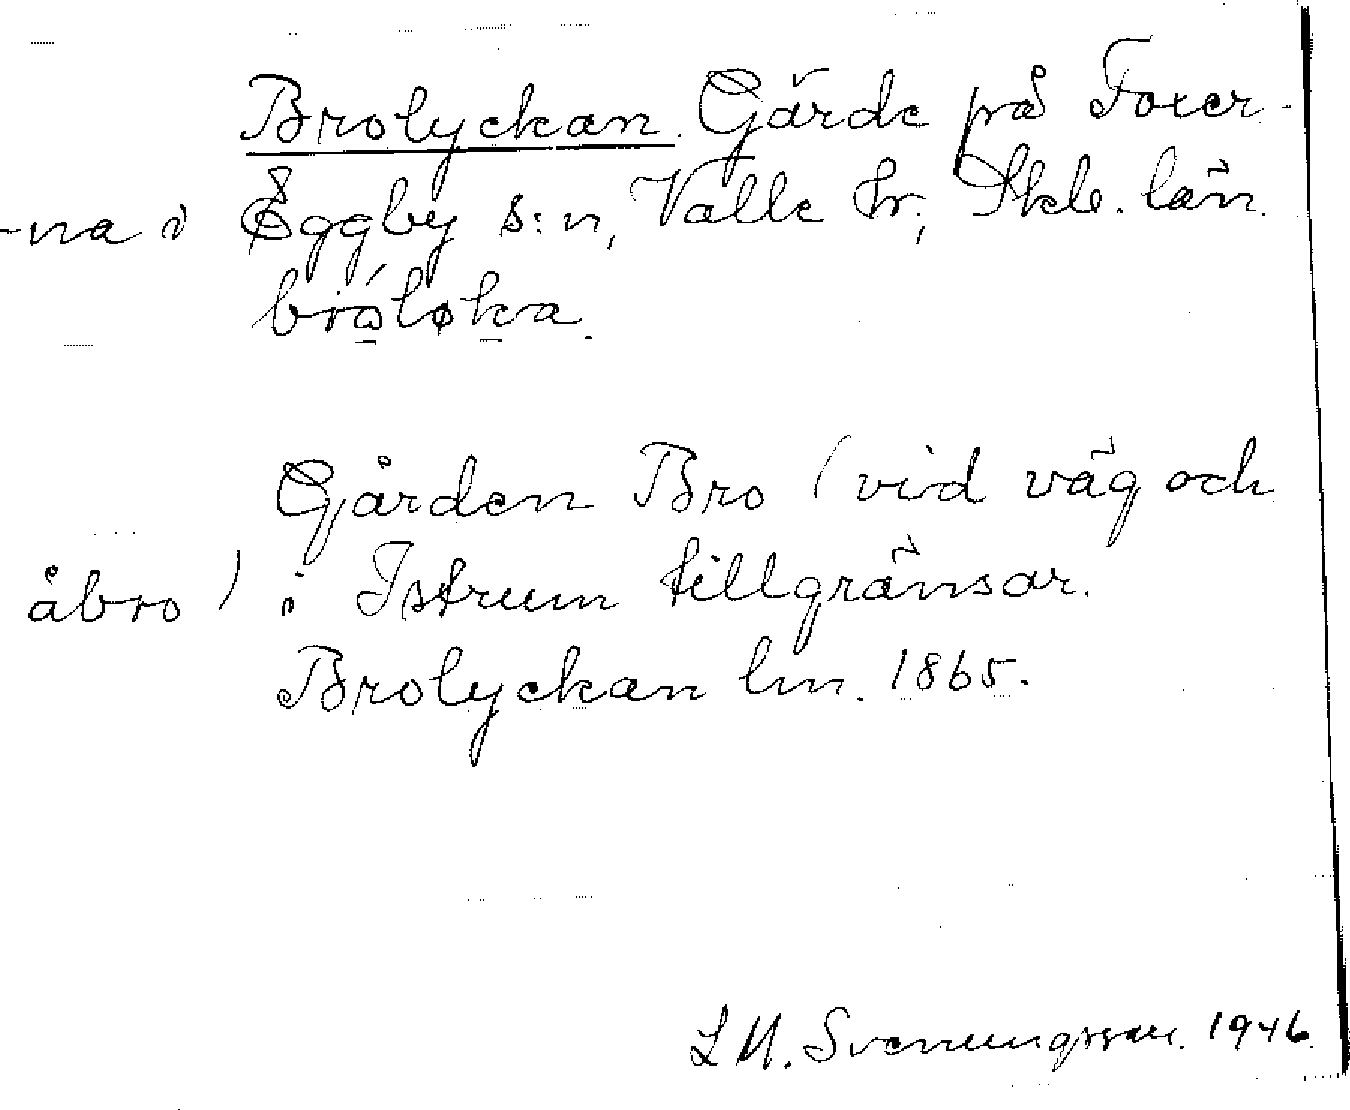 Brolyckan. Gärde på Foxer-
-na i Eggby s:n, Valle hr; Skb. län.
Gården Bro (vid väg och
åbro) i Istrum tillgränsar.
Brolyckan lm. 1865.
L M. Svenungsson. 1946.